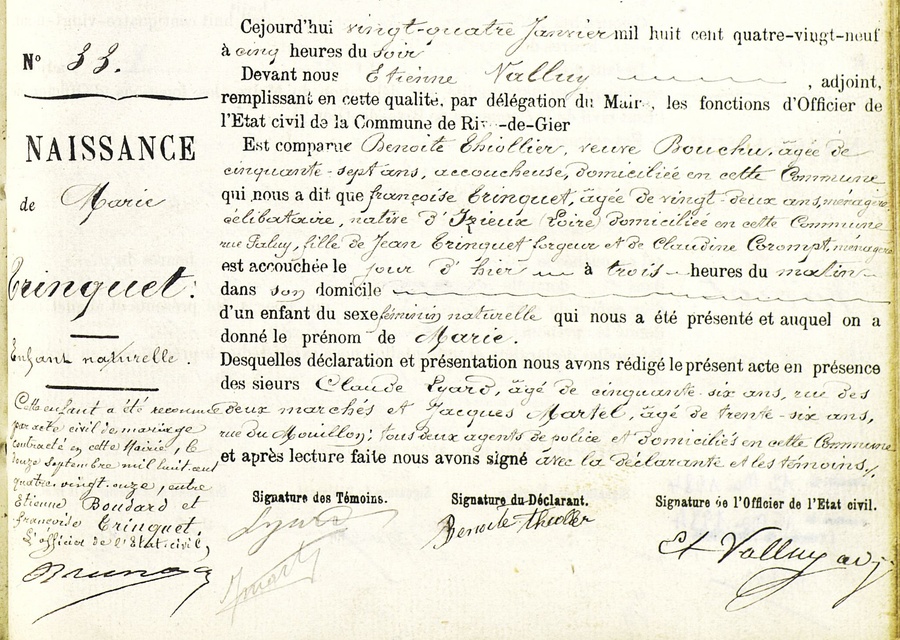 N° 33.
NAISSANCE
de Marie
Trinquet.
Enfant naturelle.
Cette enfant a été reconnue
par acte civil de mariage
contracté en cette Mairie, le
onze Septembre mil huit cent
quatre-vingt-onze, entre
Etienne Boudard et
françoise Trinquet.
L'officier de l'Etat civil,
Cejourd'hui vingt-quatre Janvier mil huit cent quatre-vingt-neuf
à cinq heures du soir
Devant nous Etienne Valluy, adjoint,
remplissant en cette qualité, par délégation du Mair, les fonctions d'Officier de
l'Etat civil de la Commune de Riv-de-Gier
Est comparue Benoite Thiollier, veuve Bouchu, âgée de
cinquante-sept ans, accoucheuse, domiciliée en cette Commune
qui nous a dit que françoise Trinquet, âgée de vingt-deux ans, ménagère
célibataire, native d'Izieux (Loire) domiciliée en cette Commune
rue Paluy, fille de Jean Trinquet forgeur et de Claudine Corompt, ménagère
est accouchée le jour d'hier à trois heures du matin
dans son domicile
d'un enfant du sexe féminin naturelle qui nous a été présenté et auquel on a
donné le prénom de Marie.
Desquelles déclaration et présentation nous avons rédigé le présent acte en présence
des sieurs Claude Lyard, âgé de cinquante-six ans, rue des
deux marchés et Jacques Martel, âgé de trente-six ans,
rue du Mouillon; tous deux agents de police et domiciliés en cette Commune
et après lecture faite nous avons signé avec la déclarante et les témoins.
Signature des Témoins. Signature du Déclarant. Signature de l'Officier de l'Etat civil.
Lyard Benoite Thiollier Et Valluy adj